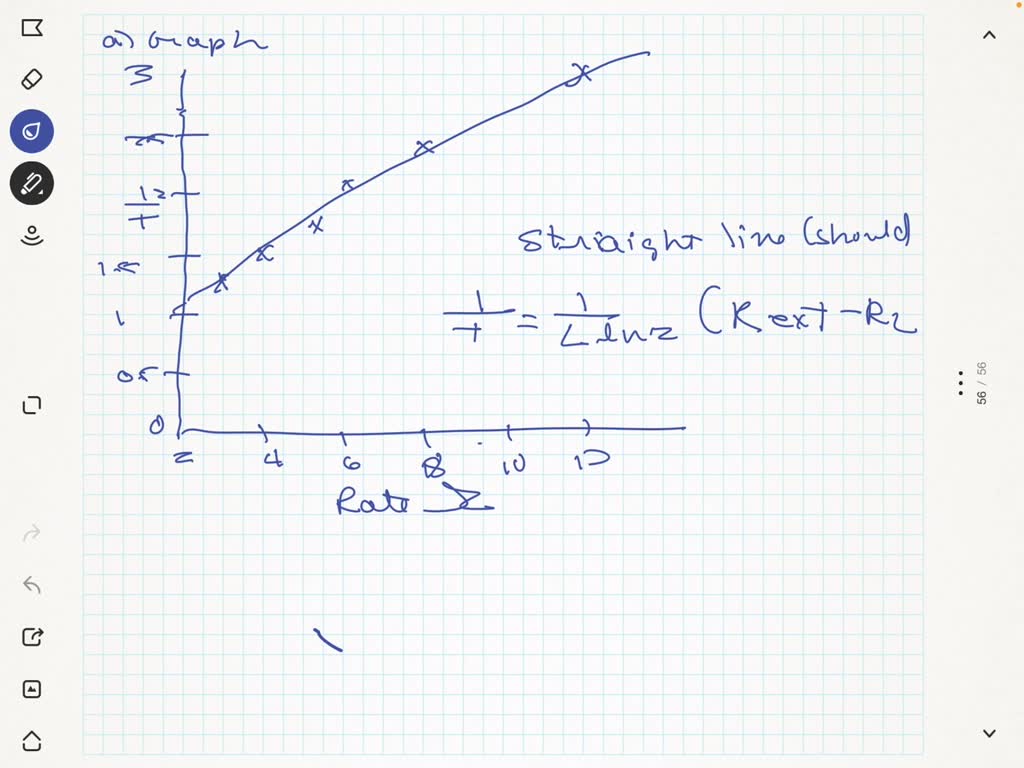 a) Graph
3
25
12
T
1.5
1
05
0
2 4 6 8 10 12
Rate Σ
straight line (should)
1/t = 1/L ln2 (R ext - R L
56 / 56